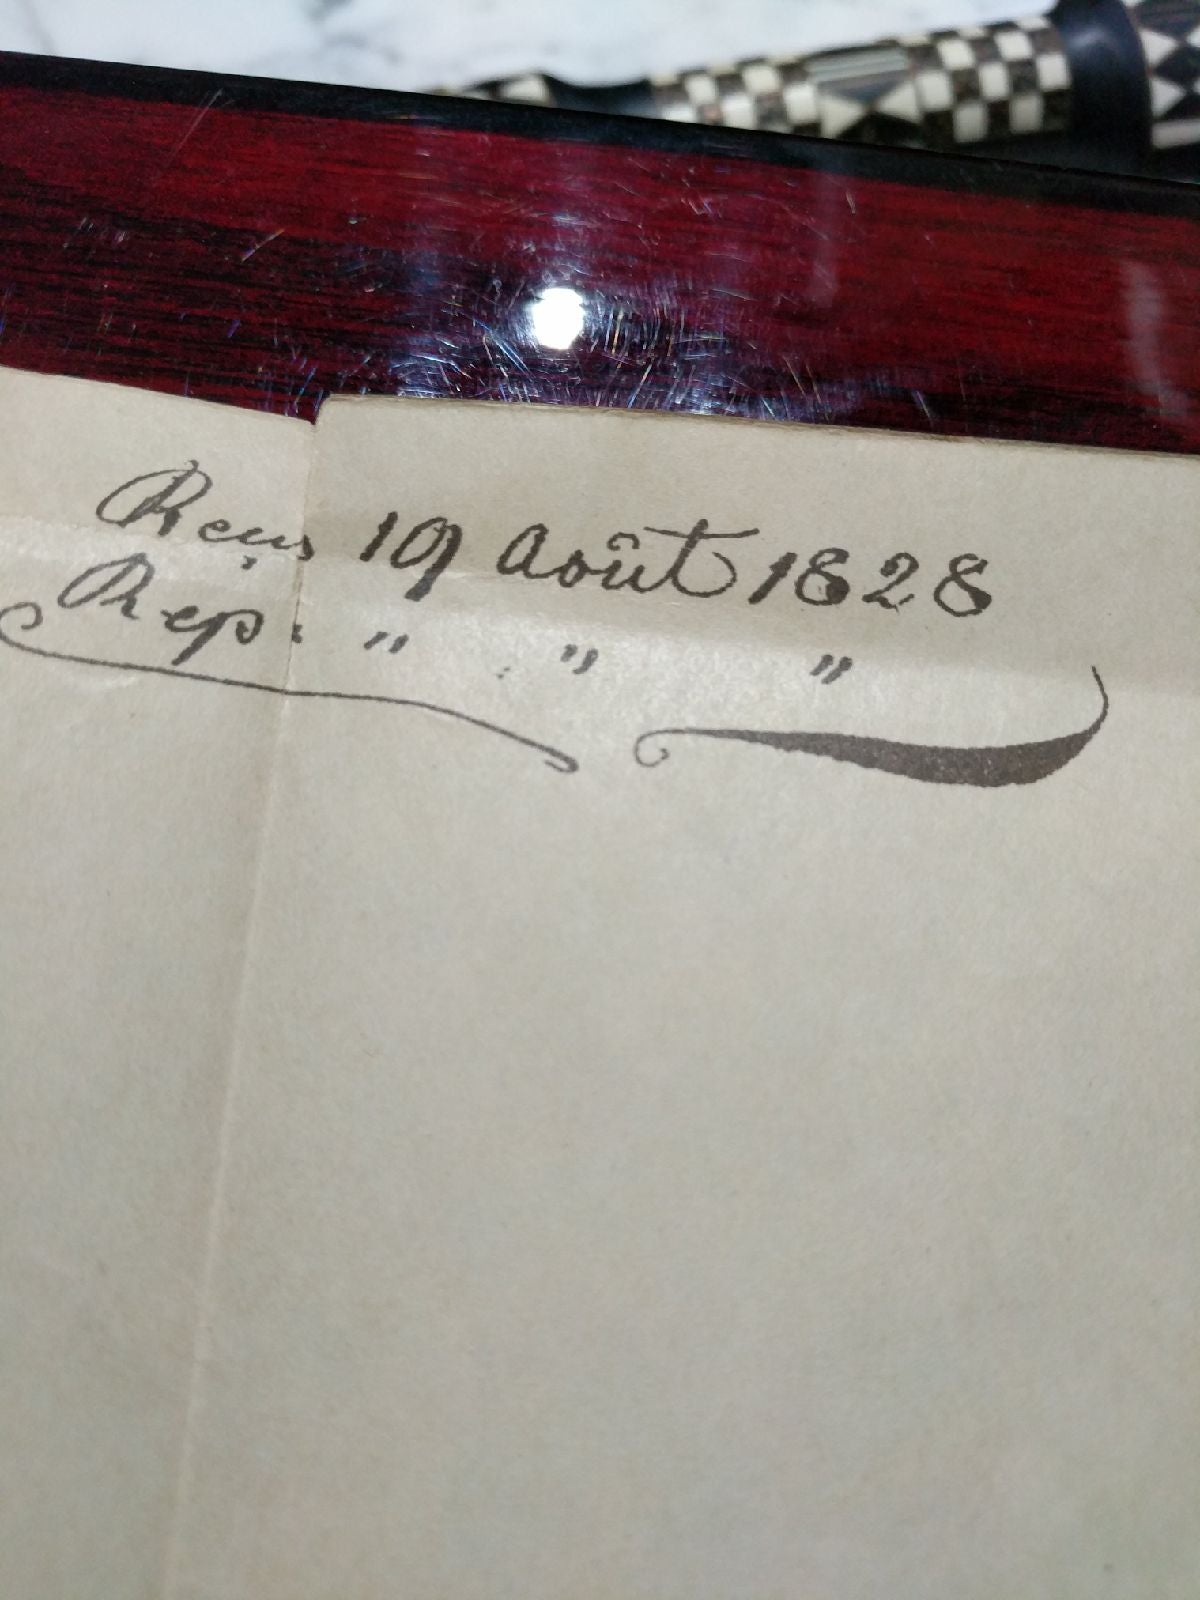 Reçu 19 Août 1828
Rep. " " "